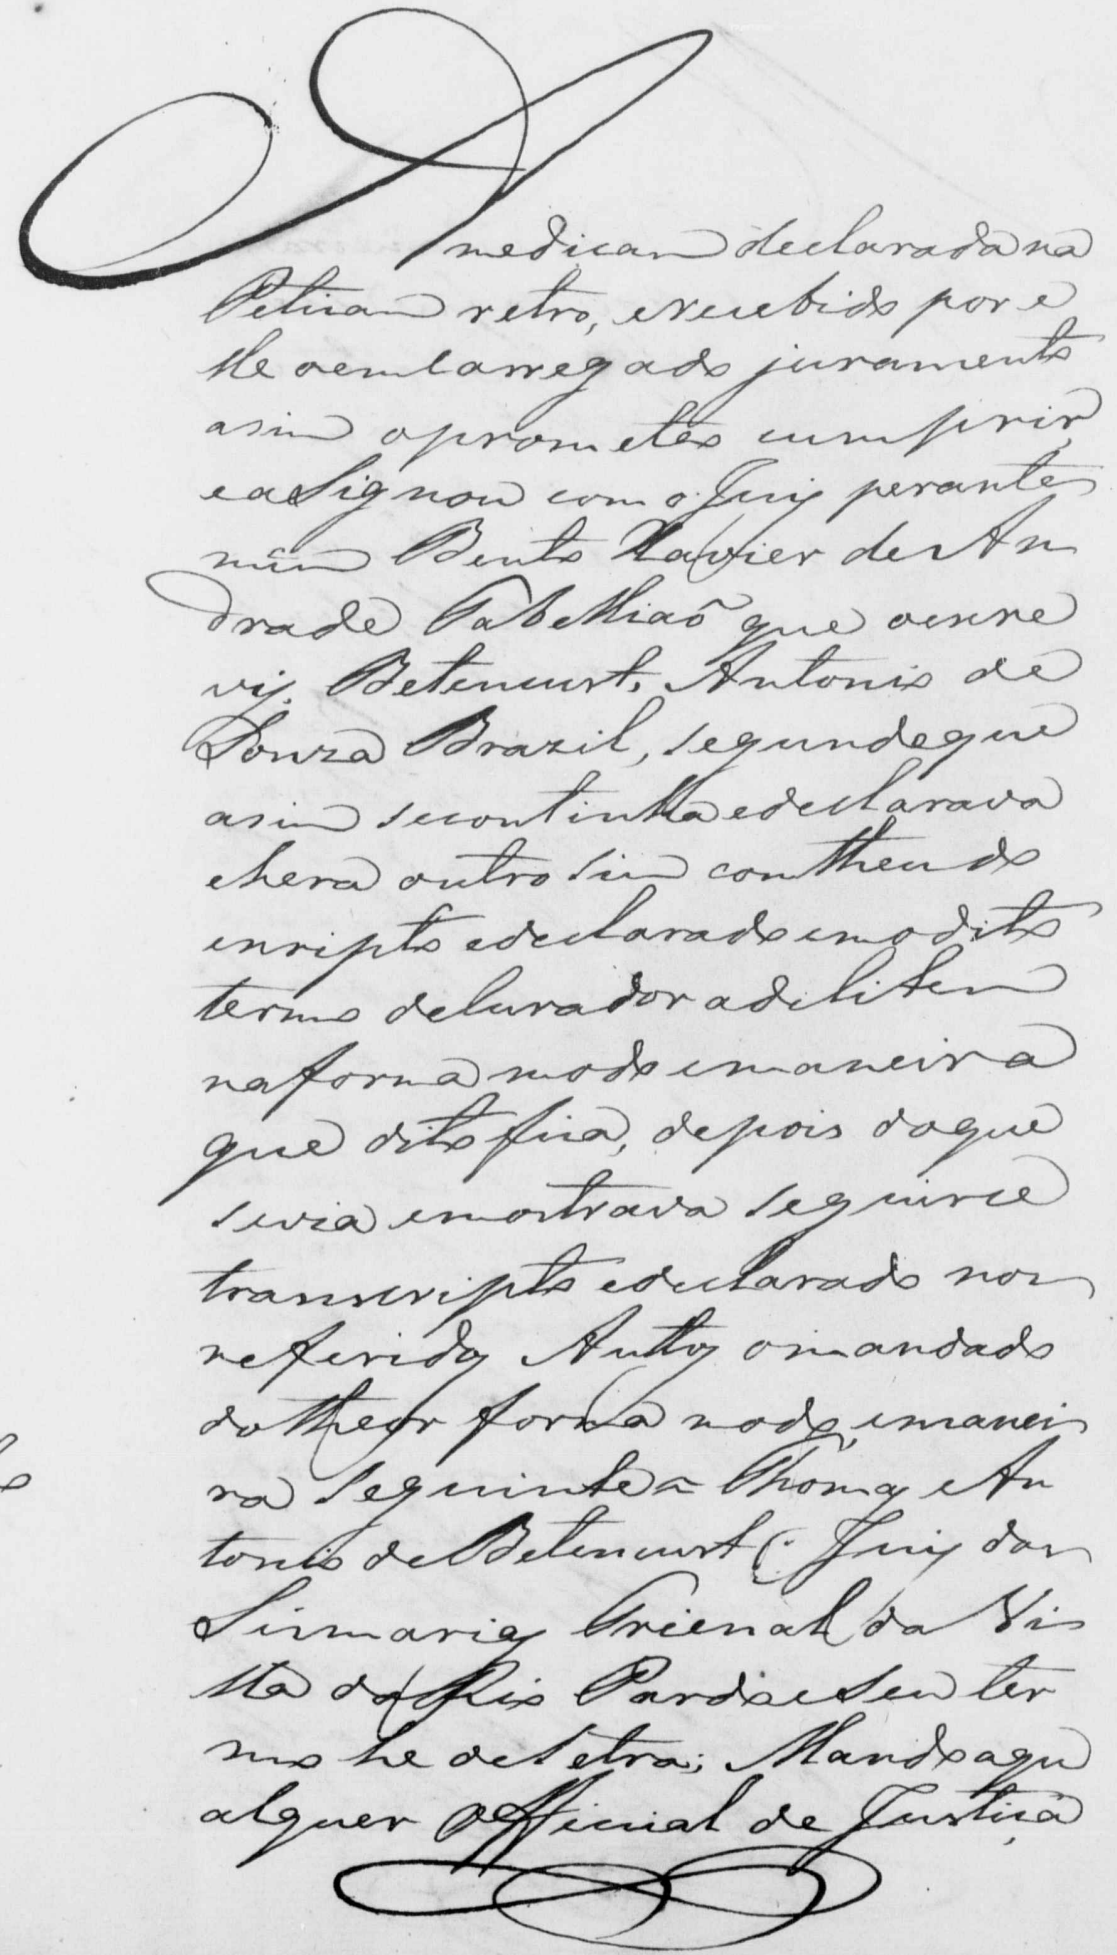 A medicam declarada na
Peticam retro, e recebido por e
lle o emcarregado juramento
asim o prometeo cumprir,
e asignou com o Juiz perante
mim Bento Xavier de An
drade Tabelliaõ que o escre
vy. Betencurt. Antonio de
Souza Brazil, segundo que
asim se continha e declarava
e hera outro sim contheudo
escripto e declarado em o dito
termo de Curador adelitem
na forma modo e maneira
que dito fica, depois do que
se via e mostrava seguirce
transcripto e declarado nos
referidos Auttos o mandado
do theor forma modo, e manei
ra seguinte = Thomas An
tonio de Betencurt. Juiz das
Sismarias Trienal da Vi
lla do Rio Pardo e seu ter
mo he de Letra; Mando a qu
alquer Official de Justiça